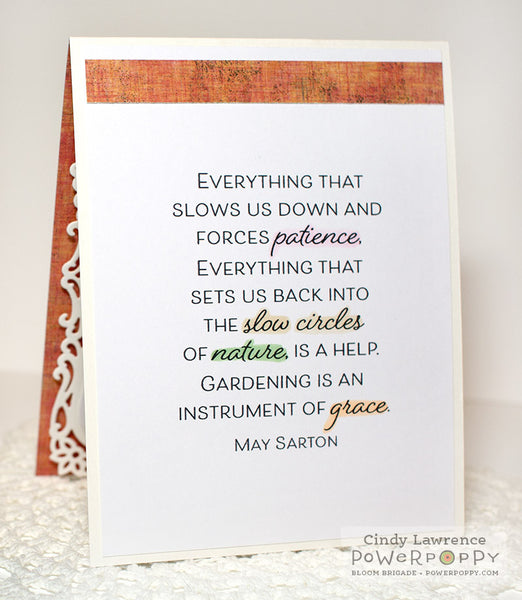 Everything that
slows us down and
forces patience,
Everything that
sets us back into
the slow circles
of nature, is a help.
Gardening is an
instrument of grace.
May Sarton
Cindy Lawrence
POWERPOPPY
BLOOM BRIGADE • POWERPOPPY.COM